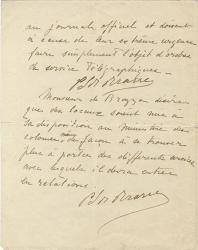 au journal officiel et doivent
à cause de leur extrême urgence
faire simplement l'objet d'ordres
de service télégraphiques.
P. S. de Brazza
Monsieur de Brazza désire
que des locaux soient mis à
sa disposition au Ministère des
colonies, de façon à se trouver
plus à portée des différents services
avec lesquels il devra entrer
en relations.
P. S. de Brazza